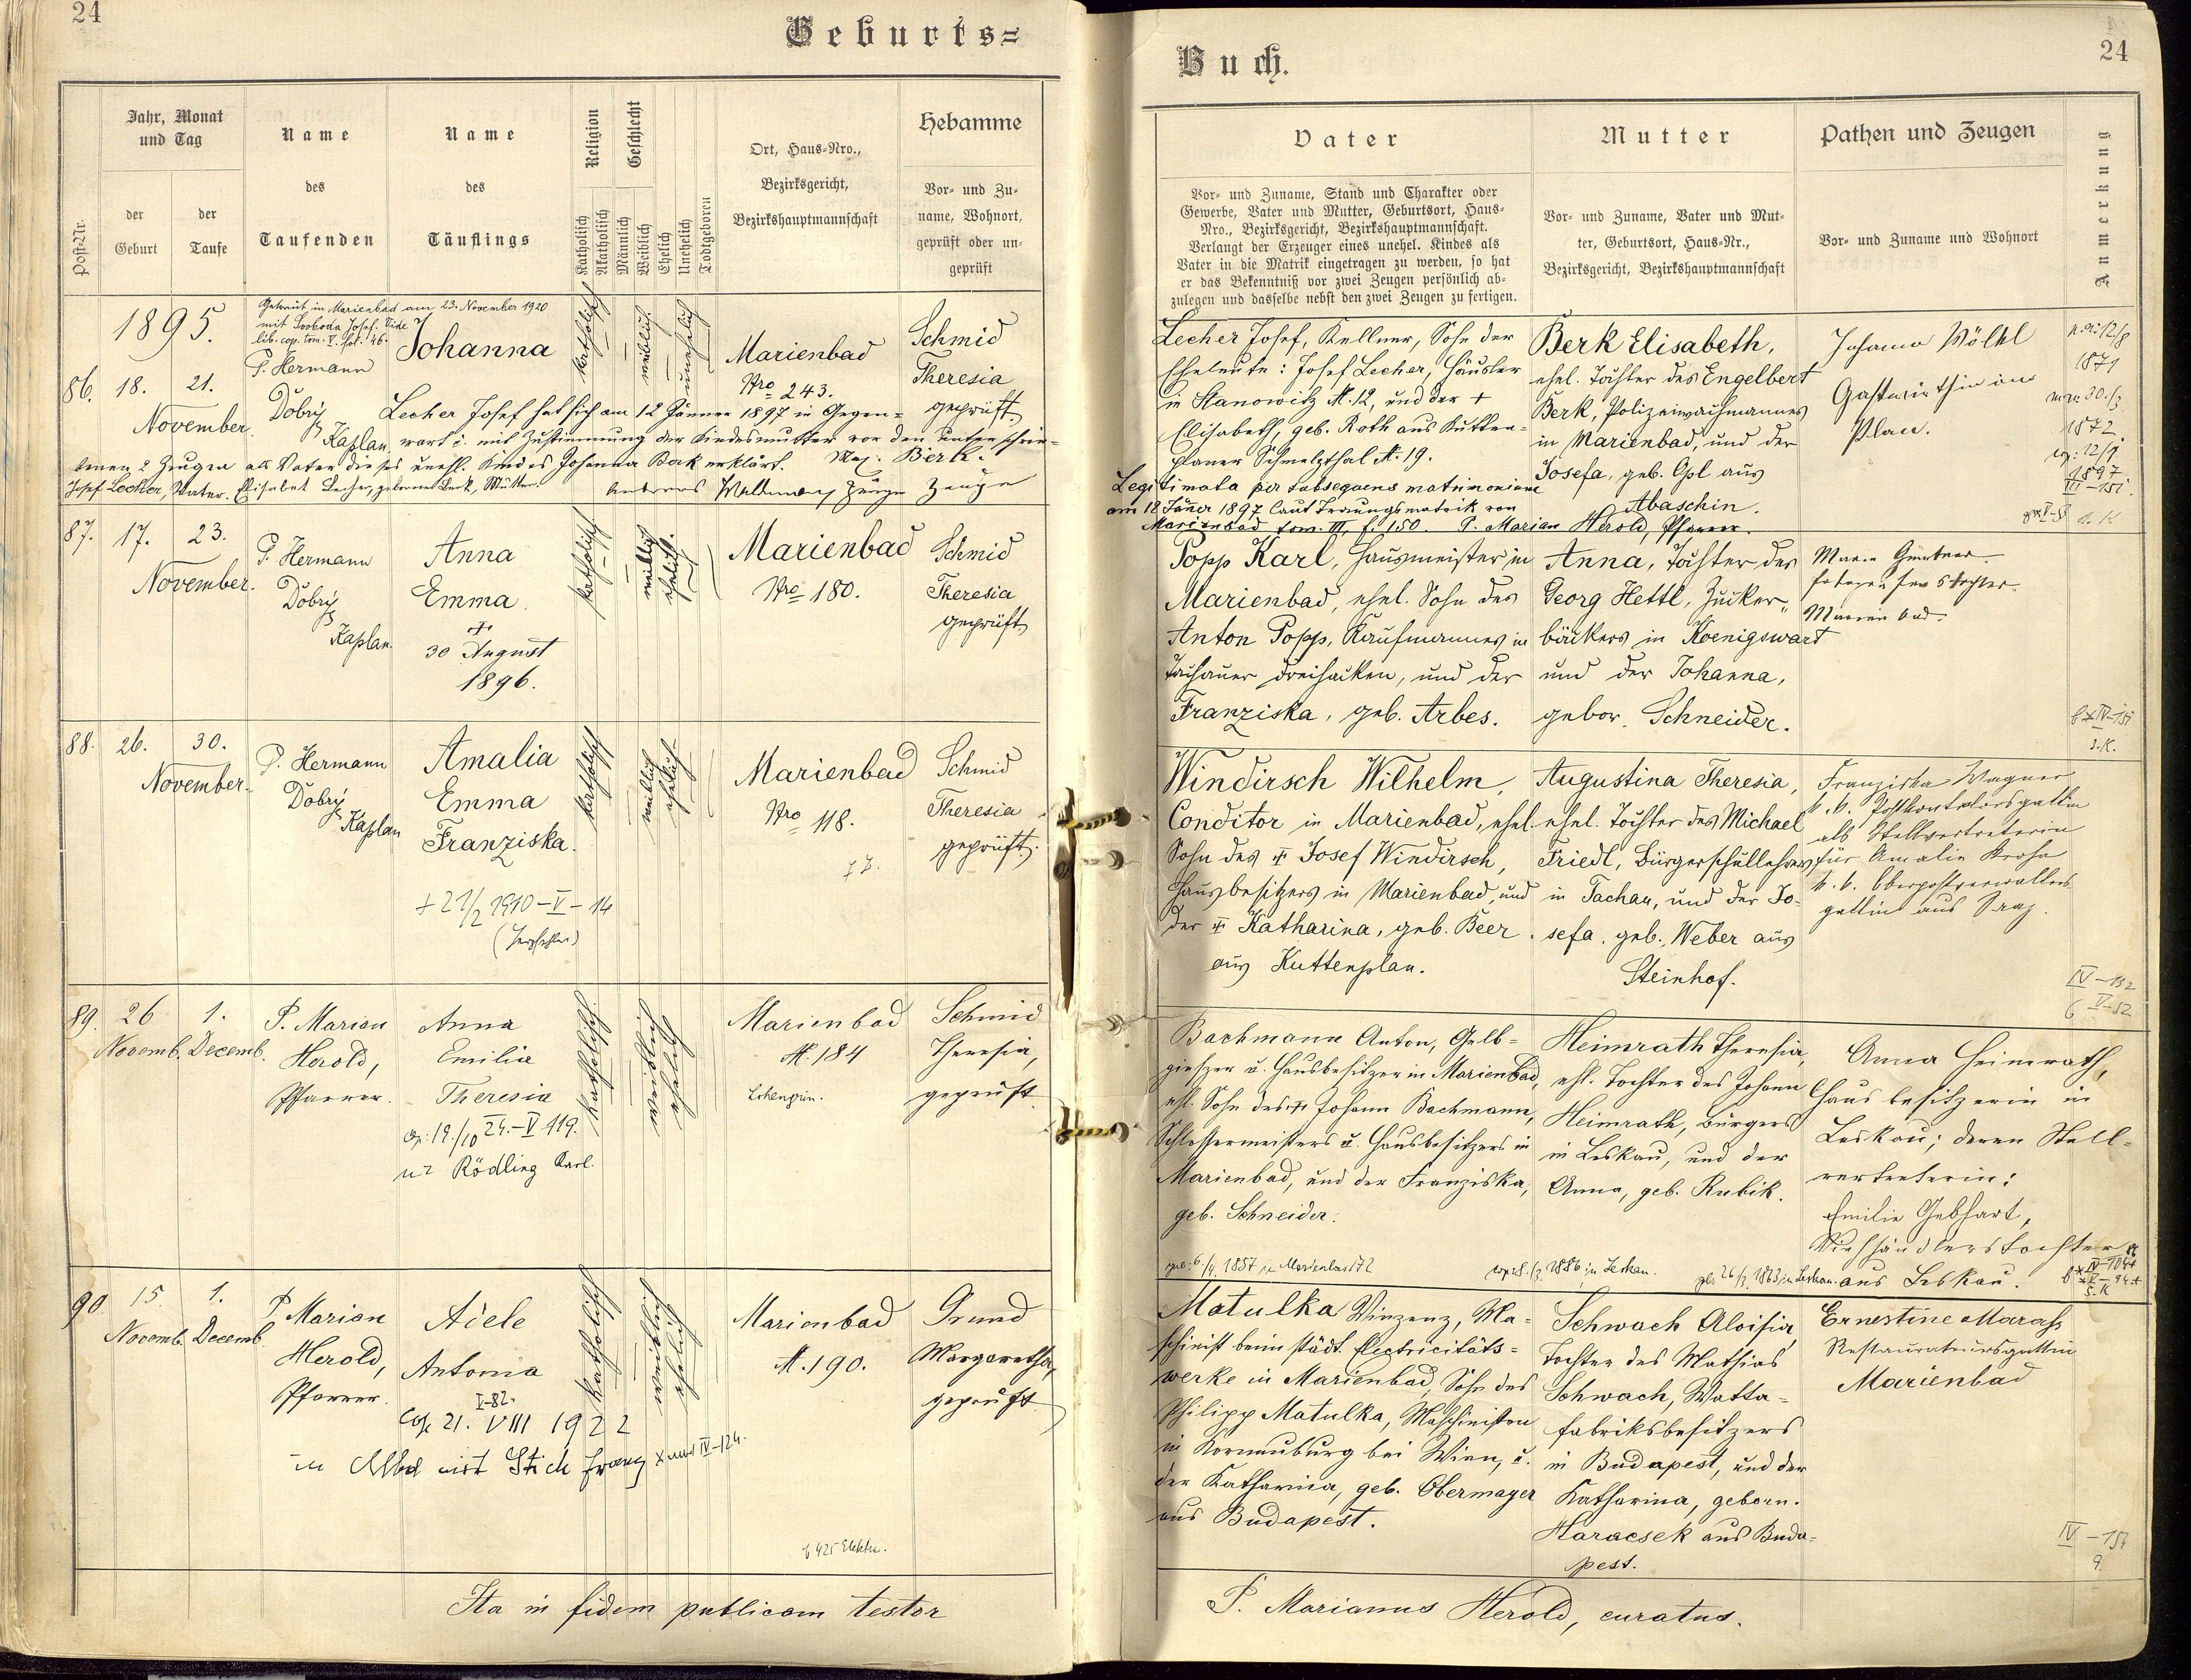 24
Geburts=
Jahr, Monat
und Tag
Name
des
Taufenden
Name
des
Täuflings
Religion
Geschlecht
Ort, Haus-Nro.,
Bezirksgericht,
Bezirkshauptmannschaft
Hebamme
Post-Nr.
der
Geburt
der
Taufe
Katholisch
Akatholisch
Männlich
Weiblich
Ehelich
Unehelich
Todtgeboren
Vor- und Zu-
name, Wohnort,
geprüft oder un-
geprüft
1895.
Getraut in Marienbad am 23. November 1920
mit Svoboda Josef. Vide
lib. cop. tom. V. fol. 46.
86. 18. 21.
November.
P. Hermann
Dobrý
Kaplan
Johanna
katholisch
weiblich
unehelich
Marienbad
Nro 243.
Schmid
Theresia
geprüft
Lecher Josef hat sich am 12 Jänner 1897 in Gegen=
wart u. mit Zustimmung der Kindesmutter vor den unterschrie-
benen 2 Zeugen als Vater dieses unehl. Kindes Johanna Berk erklärt.
Josef Lecher, Vater. Elisabet Lecher, geborene Berk, Mutter.
Zeuge
87. 17. 23.
November.
P. Hermann
Dobrý
Kaplan.
Anna
Emma.
30 August
1896.
katholisch
weiblich
ehelich.
Marienbad
Nro 180.
Schmid
Theresia
geprüft
88. 26. 30.
November.
P. Hermann
Dobrý
Kaplan
Amalia
Emma
Franziska.
+ 21/2 1910-V-14
(Herzfehler)
katholisch
weiblich
ehelich
Marienbad
Nro 118.
Schmid
Theresia
geprüft.
89. 26 1.
Novemb. Decemb.
P. Marian
Herold,
Pfarrer.
Anna
Emilie
Theresia
cop: 19./10 24.-V 119.
Rödling Karl.
katholisch
weiblich
ehelich
Marienbad
N. 184
Lohengrin.
Schmid
Theresia,
geprüft
90. 15. 1.
Novemb. Decemb.
P. Marian
Herold,
Pfarrer.
Adele
Antonia
V-82.
Cop. 21. VIII 1922
in Mbd mit Stich Franz
katholisch
weiblich
ehelich
Marienbad
N. 190.
Grund
Margaretha,
geprüft
Ita in fidem publicam testor
Buch.
24
Vater
Vor- und Zuname, Stand und Charakter oder
Gewerbe, Vater und Mutter, Geburtsort, Haus-
Nro., Bezirksgericht, Bezirkshauptmannschaft.
Verlangt der Erzeuger eines unehel. Kindes als
Vater in die Matrik eingetragen zu werden, so hat
er das Bekenntniß vor zwei Zeugen persönlich ab-
zulegen und dasselbe nebst den zwei Zeugen zu fertigen.
Mutter
Vor- und Zuname, Vater und Mut-
ter, Geburtsort, Haus-Nr.,
Bezirksgericht, Bezirkshauptmannschaft
Pathen und Zeugen
Vor- und Zuname und Wohnort
Anmerkung
Lecher Josef, Kellner, Sohn der
Eheleute: Josef Lecher, Häusler
in Stanowitz N. 12, und der +
Elisabeth, geb. Roth aus Kutten-
planer Schmelzthal N. 19.
Legitimata per subsequens matrimonium
am 18 Jäner 1897 laut Trauungsmatrik von
Marienbad tom. III, f. 150. P. Marian Herold, Pfarrer.
Berk Elisabeth,
ehel. Tochter des Engelbert
Berk, Polizeiwachmannes
in Marienbad, und der
Josefa, geb. Opl aus
Abaschin.
Johanna Wölkl
Gastwirthin in
Plan.
1871
1872
1897
III-151.
Popp Karl, Hausmeister in
Marienbad, ehel. Sohn des
Anton Popp, Kaufmannes in
Tachauer Dreihacken, und der
Franziska, geb. Arbes.
Anna, Tochter des
Georg Hettl, Zucker-
bäckers in Koenigswart
und der Johanna,
gebor. Schneider.
Marienbad.
Windirsch Wilhelm,
Conditor in Marienbad, ehel.
Sohn des Josef Windirsch,
Hausbesitzers in Marienbad, und
der Katharina, geb. Beer
aus Kuttenplan.
Augustina Theresia,
ehel. Tochter des Michael
Friedl, Bürgerschullehrers
in Tachau, und der Jo-
sefa, geb. Weber aus
Steinhof.
Franziska Wagner
k. k. Postkontrolorsgattin
als Stellvertreterin
für Amalie Kroha
k. k. Oberpostverwalters
gattin aus Prag.
IV-152
Bachmann Anton, Gelb=
gießer u. Hausbesitzer in Marienbad,
ehl. Sohn des Johann Bachmann,
Schlossermeisters u. Hausbesitzers in
Marienbad, und der Franziska,
geb. Schneider.
Heimrath Theresia,
ehl. Tochter des Johann
Heimrath, Bürgers
in Leskau, und der
Anna, geb. Kubik.
Anna Heimrath,
Hausbesitzerin in
Leskau; deren Stell=
vertreterin:
Emilie Gebhart,
Viehhändlerstochter
aus Leskau.
Matulka Vinzenz, Ma=
schinist beim städt. Electricitäts=
werke in Marienbad, Sohn des
Philipp Matulka, Maschinisten
in Korneuburg bei Wien, u.
der Katharina, geb. Obermayer
aus Budapest.
Schwach Aloisia,
Tochter des Mathias
Schwach, Watta-
fabriksbesitzers
in Budapest, und der
Katharina, geborn.
Haracsek aus Buda-
pest.
Ernestine Marasz
Restaurateursgattin
Marienbad
P. Marianus Herold, curatus.